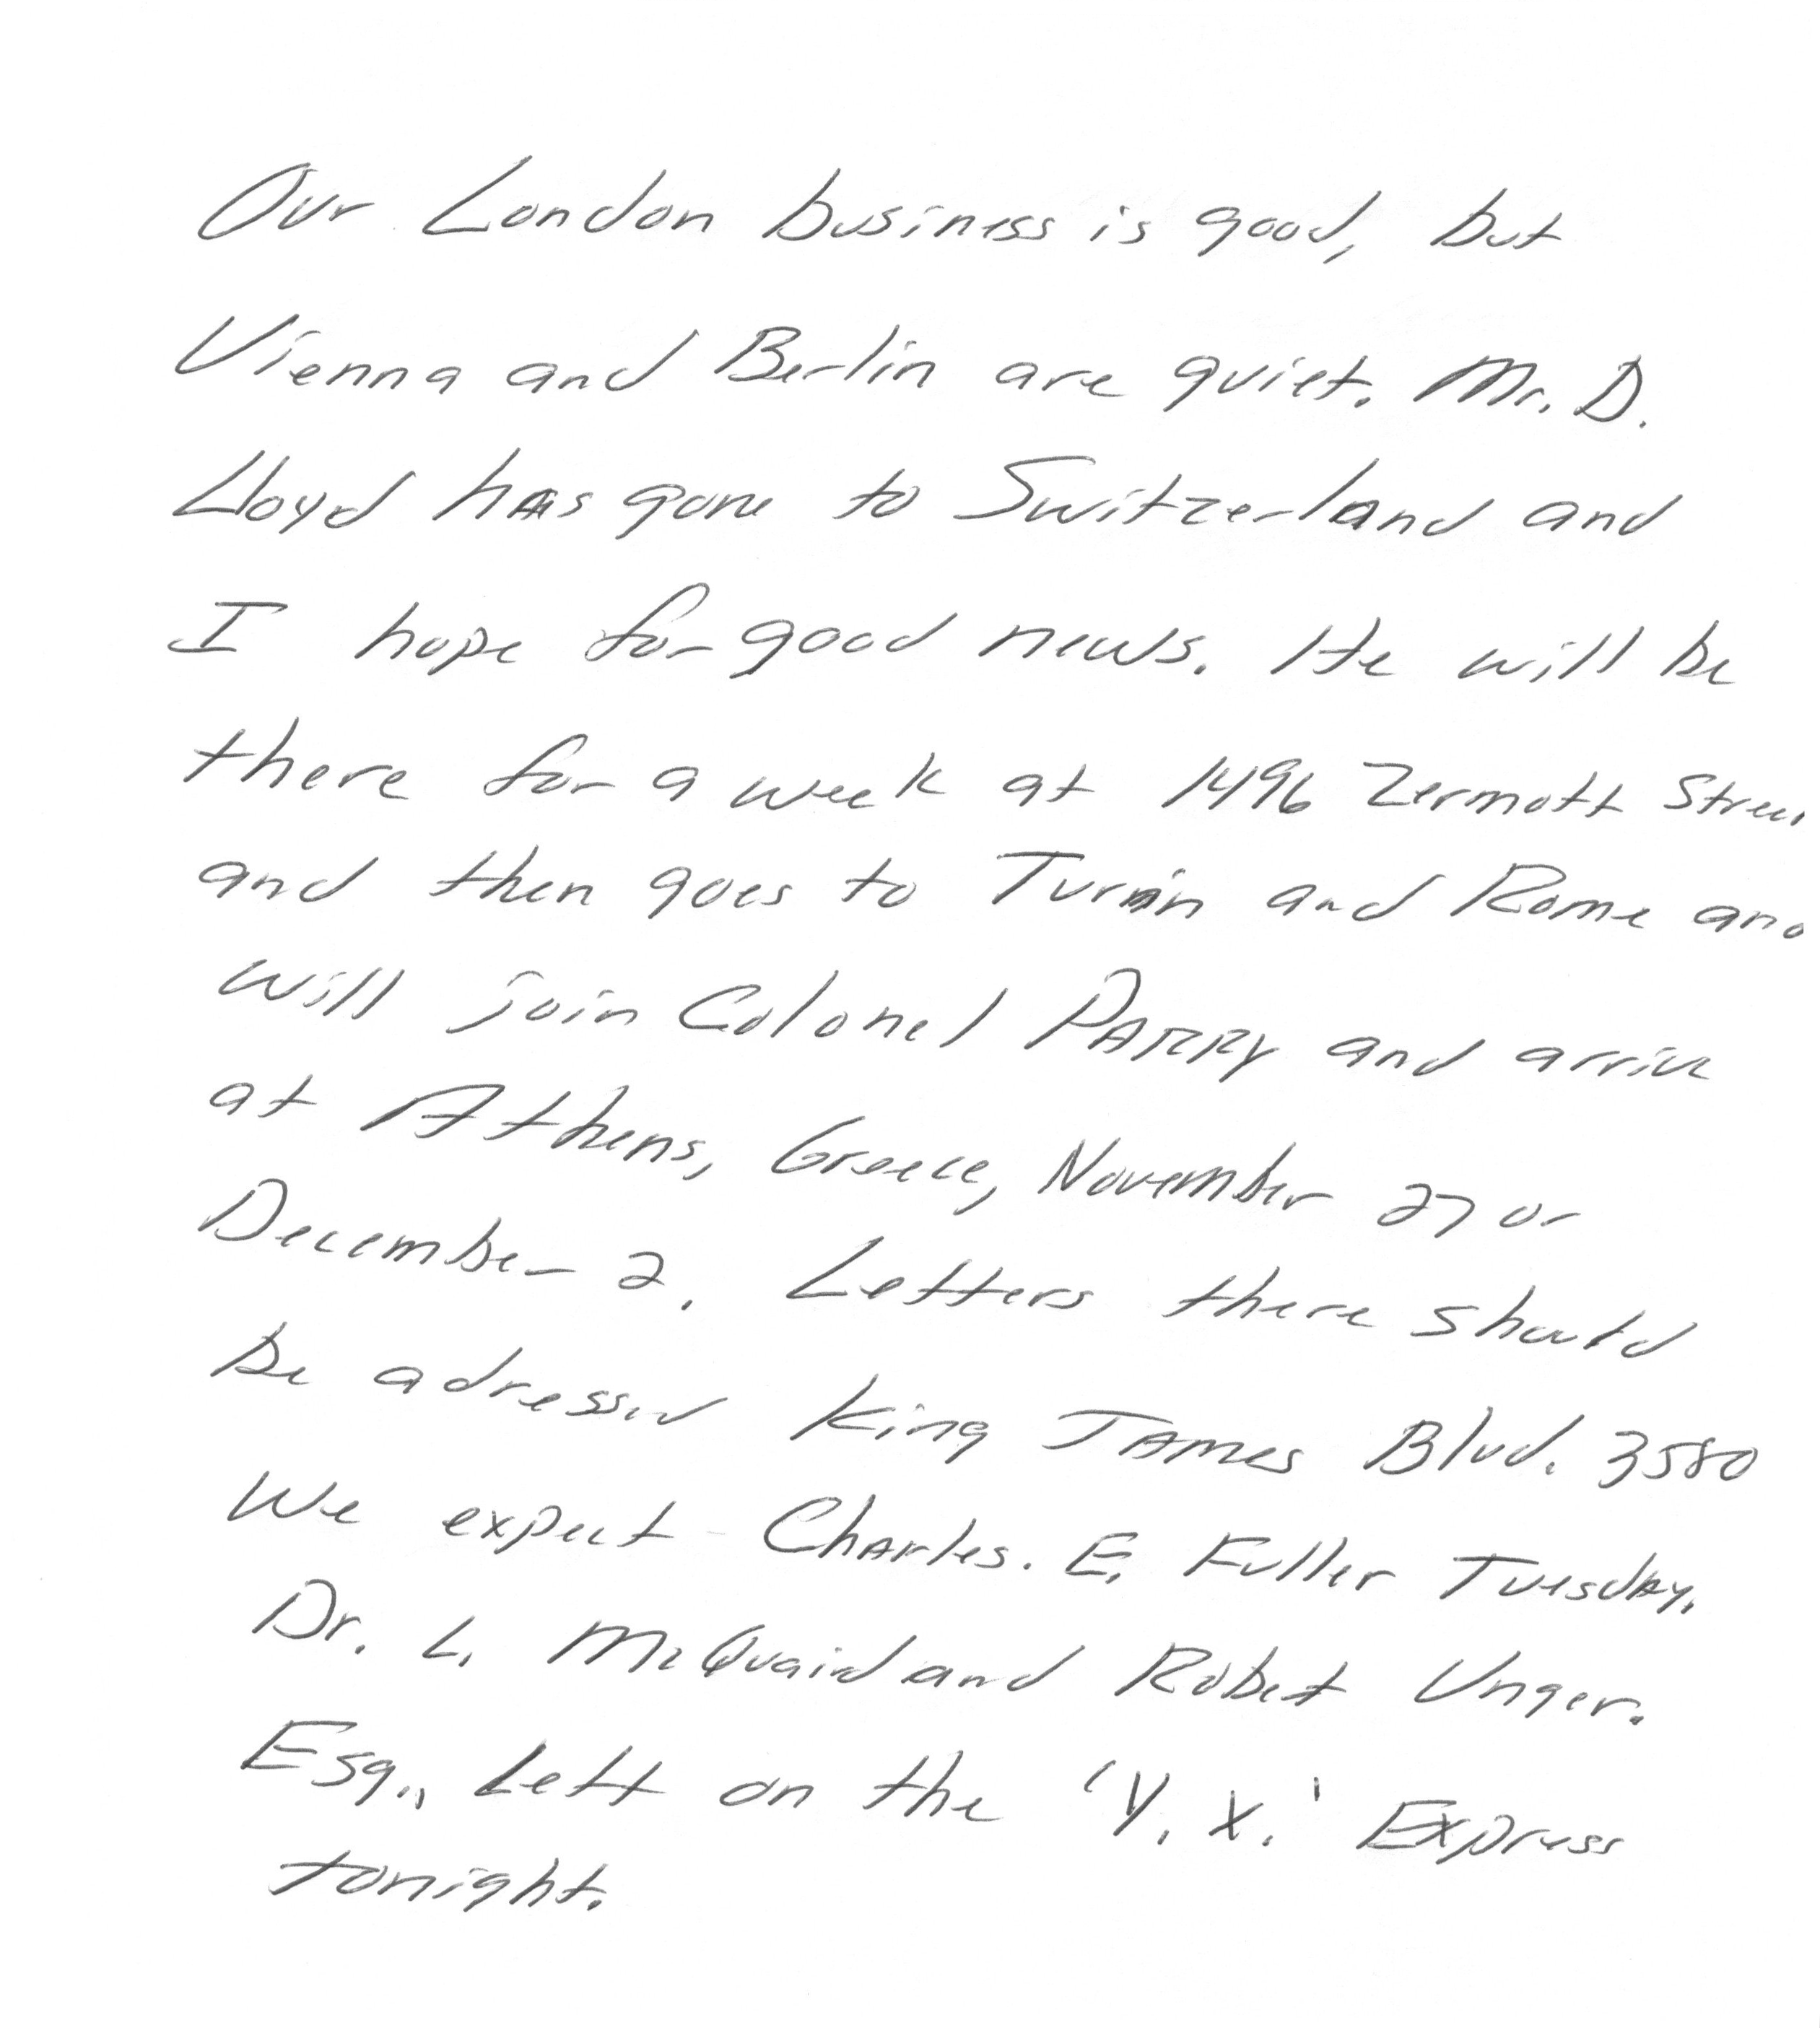 Our London business is good, but
Vienna and Berlin are quiet. Mr. D.
Lloyd has gone to Switzerland and
I hope for good news. He will be
there for a week at 1496 Zermott Street
and then goes to Turin and Rome and
will join Colonel Parry and arrive
at Athens, Greece, November 27 or
December 2. Letters there should
be adressed King James Blvd. 3580
We expect Charles. E. Fuller Tuesday.
Dr. L. McQuaid and Robert Unger.
Esq., Left on the 'Y. X.' Express
tonight.